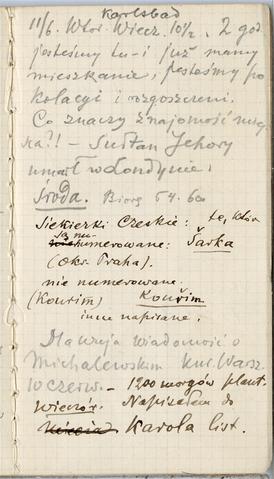 Karlsbad
11/6. Wtor. Wiecz. 10½. 2 god
jesteśmy tu - i już mamy
mieszkanie, jesteśmy po
kolacyi i rozgoszczeni.
Co znaczy znajomość
ka?! - Sułtan Jehory
umarł w Londynie.
Środa. Biorę 54.60
Siekierki Czeskie: te, które
są nu-
numerowane: Šarka
(okr. Praha).
nie numerowane:
(Kouřim) Kouřim.
inne napisane.
wiadomość o
Michalewskim Kur. Warsz.
10 czerw. - 1200 morgów plant.
wieczór. Napisałem do
Karola list.